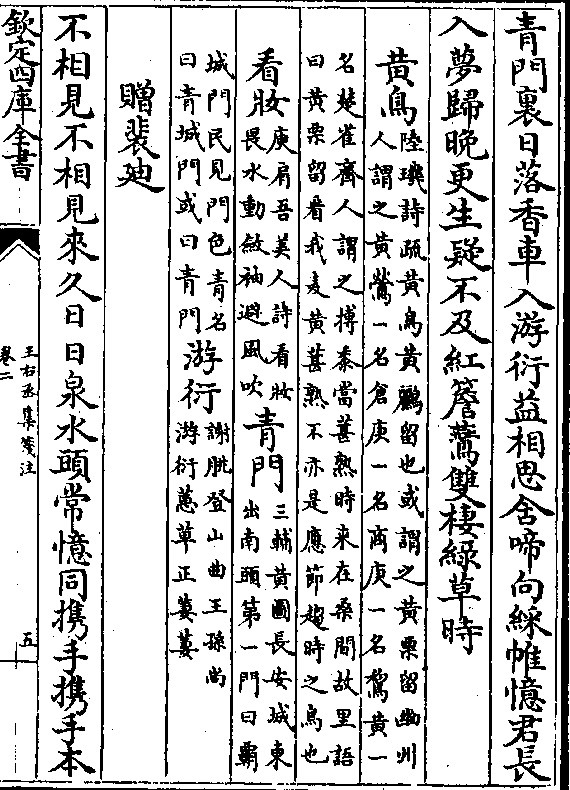 青門裏日落香車入游衍益相思含啼向綵帷憶君長
入夢歸晚更生疑不及紅簷鷰雙棲綠草時
黃鳥陸璣詩疏黃鳥黃鸝留也或謂之黃栗留幽州
人謂之黃鶯一名倉庚一名商庚一名鵹黃一
名楚雀齊人謂之摶黍當葚熟時來在桑間故里語
曰黃栗留看我麥黃葚熟不亦是應節趨時之鳥也
看妝庾肩吾美人詩看妝
畏水動斂袖避風吹
青門三輔黃圖長安城東
出南頭第一門曰霸
城門民見門色青名
曰青城門或曰青門
游衍謝朓登山曲王孫尚
游衍蕙草正萋萋
贈裴迪
不相見不相見來久日日泉水頭常憶同携手携手本
欽定四庫全書
王右丞集箋注
卷二
五